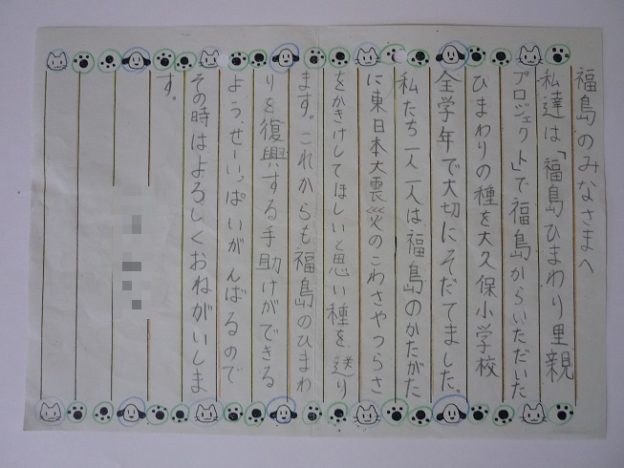 福島のみなさまへ
私達は「福島ひまわり里親
プロジェクト」で福島からいただいた
ひまわりの種を大久保小学校
全学年で大切にそだてました。
私たち一人一人は福島のかたがた
に東日本大震災のこわさやつらさ
をかきけしてほしいと思い種を送り
ます。これからも福島のひまわ
りを復興する手助けができる
よう、せーいっぱいがんばるので
その時はよろしくおねがいしま
す。